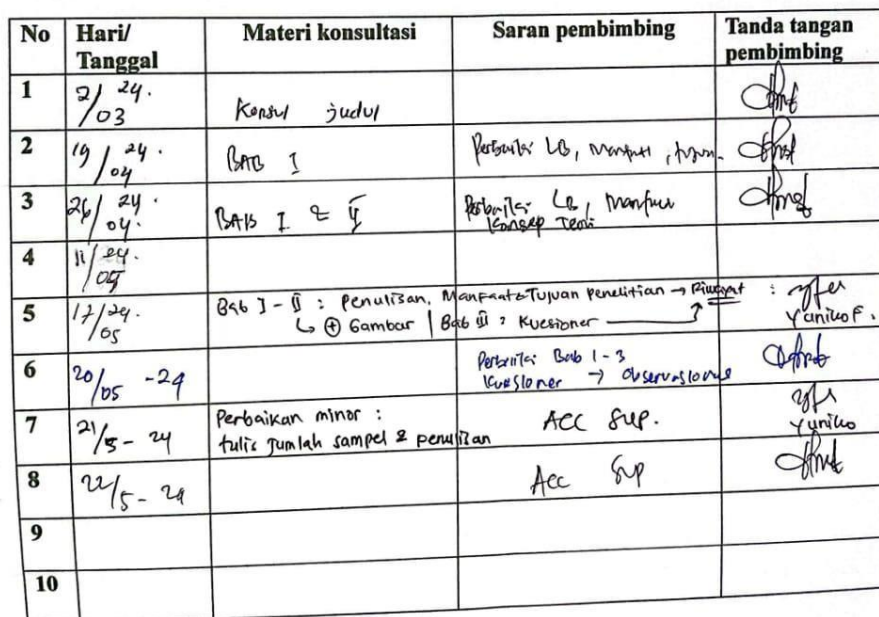 No Hari/ Tanggal Materi konsultasi Saran pembimbing Tanda tangan pembimbing
1 2/03 24. Konsul judul
2 19/04 24. BAB I Perbaiki LB, Manfaat, tujuan.
3 26/04 24. BAB I & II Perbaiki LB, Manfaat
Konsep Teori
4 11/05 24.
5 17/05 24. Bab I - II : Penulisan, Manfaat & Tujuan Penelitian → Riwayat :
↳ ⊕ Gambar | Bab III : Kuesioner Yuniko F.
6 20/05 - 24 Perbaiki Bab 1-3
Kuesioner →
7 21/5 - 24 Perbaikan minor : ACC Sup.
tulis jumlah sampel & penulisan Yuniko
8 22/5 - 24 Acc Sup
9
10